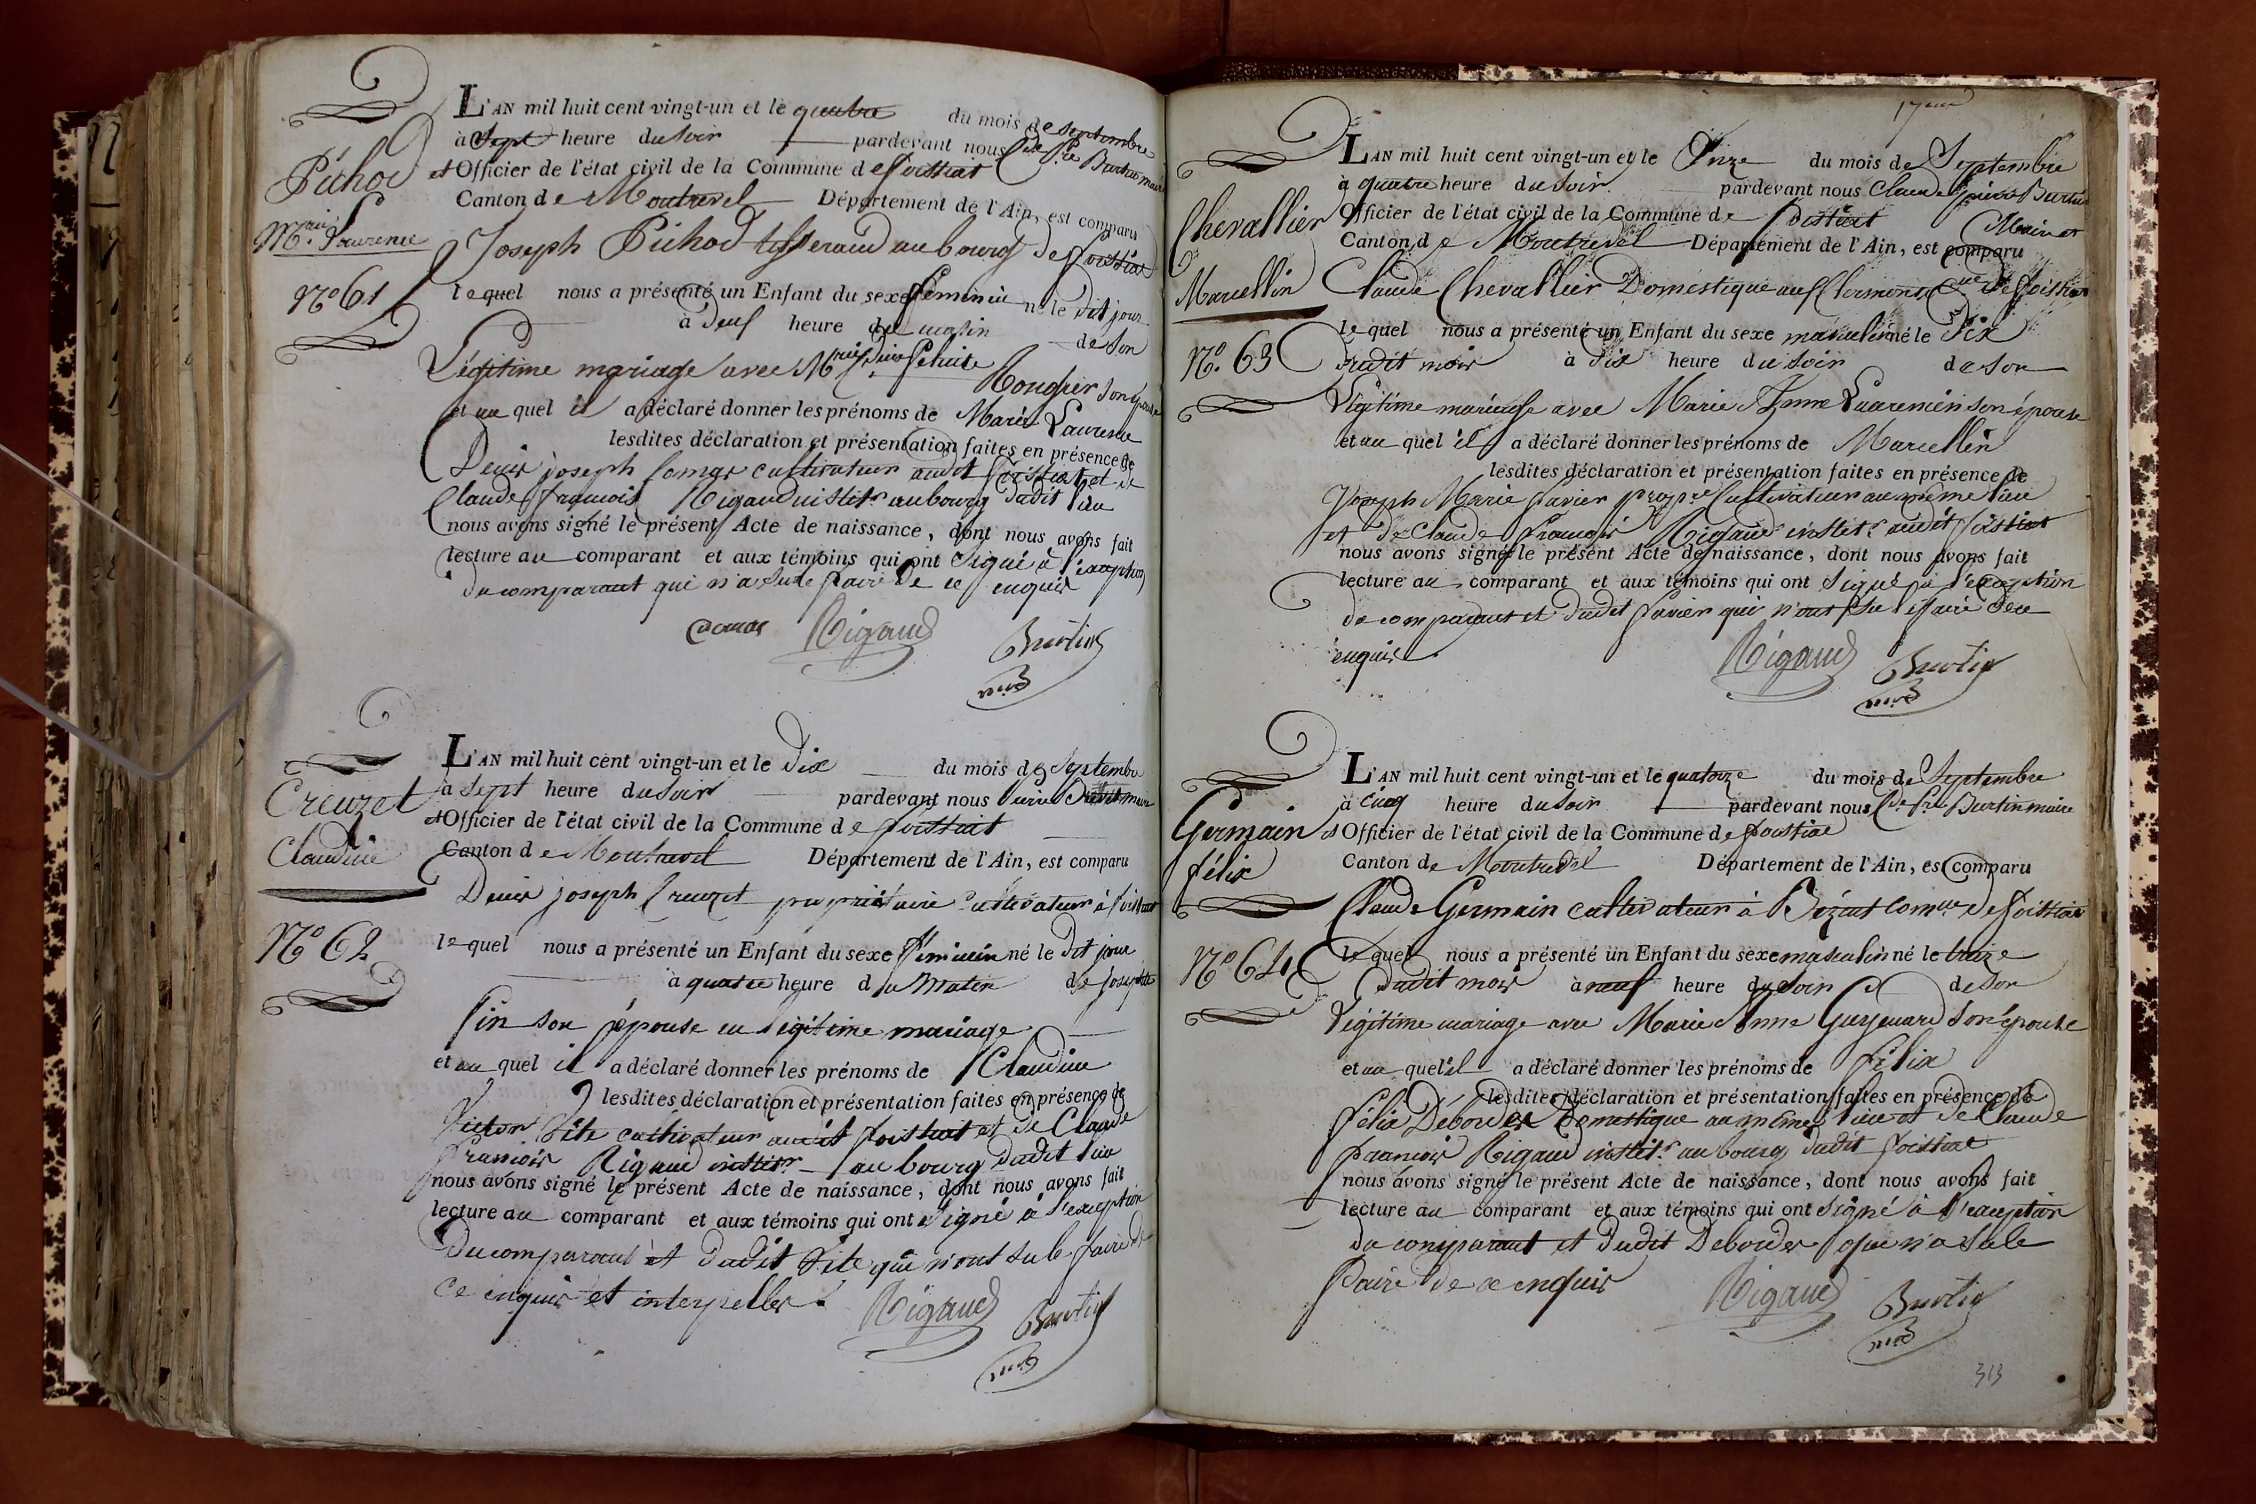 Pichod
Mie Laurence
N° 61
L'AN mil huit cent vingt-un et le quatre du mois de septembre
à Sept heure du soir pardevant nous Cde Pre Burtin maire
et Officier de l'état civil de la Commune de foissiat
Canton de Montrevel Département de l'Ain, est comparu
Joseph Pichod tisserand au bourg de foissiat
lequel nous a présenté un Enfant du sexe féminin né le dit jour
à deux heure du matin de son
Légitime mariage avec Rougier son épouse
et au quel il a déclaré donner les prénoms de Marie Laurence
lesdites déclaration et présentation faites en présence de
Denis joseph cultivateur audit foissiat et de
Claude françois Rigaud instit.r au bourg dudit lieu
nous avons signé le présent Acte de naissance, dont nous avons fait
lecture au comparant et aux témoins qui ont signé à l'exception
du comparant qui n'a su le faire de ce enquis
Rigaud Burtin
Creuzet
Claudine
N° 62
L'AN mil huit cent vingt-un et le dix du mois de Septembre
à sept heure du soir pardevant nous
et Officier de l'état civil de la Commune de foissiat
Canton de Montrevel Département de l'Ain, est comparu
Denis joseph Creuzet propriétaire cultivateur à foissiat
lequel nous a présenté un Enfant du sexe féminin né le dit jour
à quatre heure du Matin de Josephte
son épouse en légitime mariage
et au quel il a déclaré donner les prénoms de Claudine
lesdites déclaration et présentation faites en présence de
Victor Site cultivateur audit foissiat et de Claude
françois Rigaud instit.r au bourg dudit lieu
nous avons signé le présent Acte de naissance, dont nous avons fait
lecture au comparant et aux témoins qui ont signé à l'exception
du comparant et dudit Site qui n'ont su le faire de
ce enquis et interpellés.
Rigaud Burtin
Chevallier
Marcellin
N° 63
L'AN mil huit cent vingt-un et le Onze du mois de Septembre
à quatre heure du soir pardevant nous Claude pierre Burtin
Officier de l'état civil de la Commune de foissiat Maire et
Canton de Montrevel Département de l'Ain, est comparu
Claude Chevallier Domestique aux Clermonts Cne de foissiat
lequel nous a présenté un Enfant du sexe masculin né le Dix
dudit mois à dix heure du soir de son
Légitime mariage avec Marie Anne son épouse
et au quel il a déclaré donner les prénoms de Marcellin
lesdites déclaration et présentation faites en présence de
Joseph Marie favier prop.re Cultivateur au même lieu
et de Claude françois Rigaud instit.r audit foissiat
nous avons signé le présent Acte de naissance, dont nous avons fait
lecture au comparant et aux témoins qui ont signé à l'exception
du comparant et dudit favier qui n'ont su le faire de ce
enquis.
Rigaud Burtin
Germain
félix
N° 64
L'AN mil huit cent vingt-un et le quatorze du mois de Septembre
à cinq heure du soir pardevant nous Cde Pre Burtin maire
et Officier de l'état civil de la Commune de foissiat
Canton de Montrevel Département de l'Ain, est comparu
Claude Germain cultivateur à Bézut comne de foissiat
lequel nous a présenté un Enfant du sexe masculin né le treize
dudit mois à neuf heure du soir de son
Légitime mariage avec Marie Anne son épouse
et au quel il a déclaré donner les prénoms de félix
lesdites déclaration et présentation faites en présence de
félix Débordes Domestique au même lieu et de Claude
françois Rigaud instit.r au bourg dudit foissiat
nous avons signé le présent Acte de naissance, dont nous avons fait
lecture au comparant et aux témoins qui ont signé à l'exception
du comparant et dudit Débordes qui n'a su le
faire de ce enquis
Rigaud Burtin
313